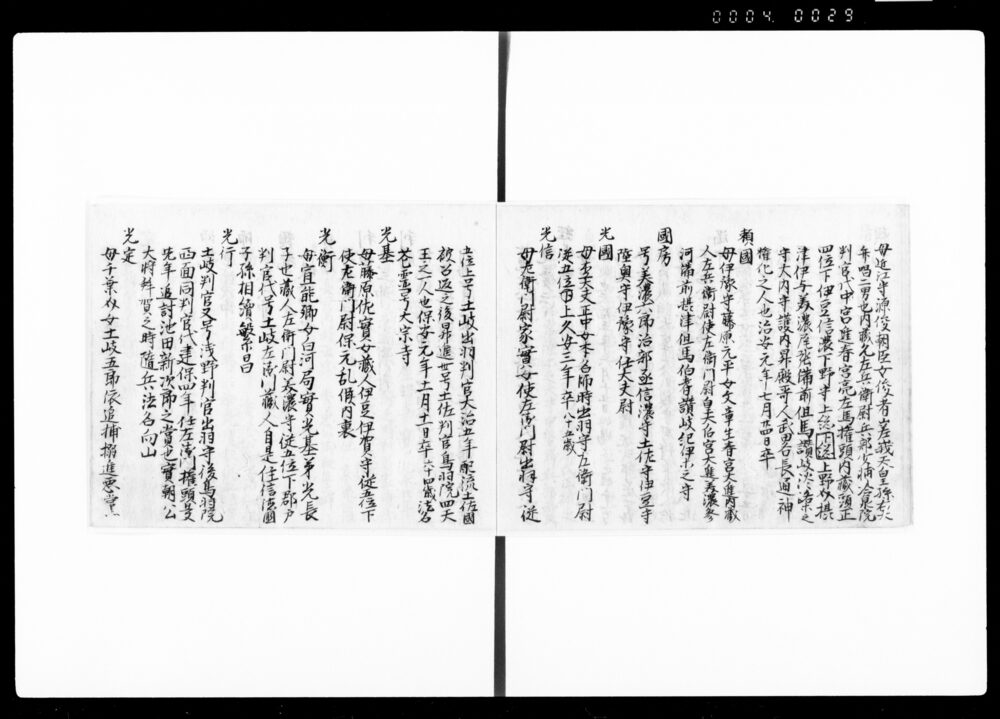 0004 0029
母近江守源俊朝臣女俊者嵯峨天皇孫
四位下伊豆信濃下野守上総下総上野
津伊与美濃尾張備前但馬讃岐淡路等之
守大内守護内昇殿哥人武男名長通神
権化之人也治安元年七月廿四日卒
頼國
母伊豫守藤原元平女文章生春宮大進内蔵
人左兵衛尉使左衛門尉皇太后宮大進美濃参
河備前摂津但馬伯耆讃岐紀伊等之守
國房
号美濃六郎治部丞信濃守土佐守伊豆守
陸奥守伊豫守任大夫尉
光國
出羽守左衛門尉
従五位下上久安三年卒八十五歳
光信
母左衛門尉家實女使左衛門尉出羽守従
五位上号土岐出羽判官大治五年配流土佐國
被召返之後昇進世号土佐判官鳥羽院四天
王之一人也保安元年十一月十一日卒六十四歳法名
号大宗寺
光基
母藤原佐實女蔵人伊豆伊賀守従五位下
使左衛門尉保元乱候内裏
光衡
母宣能卿女白河局實光基弟光長
子也蔵人左衛門尉美濃守従五位下郡戸
判官代号土岐左衛門蔵人自是住信濃國
子孫相續繁昌
光行
土岐判官又号浅野判官出羽守後鳥羽院
西面同判官代建保四年任左衛門権頭是
先年追討池田新次郎之賞也實朝公
大将拜賀之時随兵法名向山
光定
母千葉女土岐五郎依追捕搦進悪党